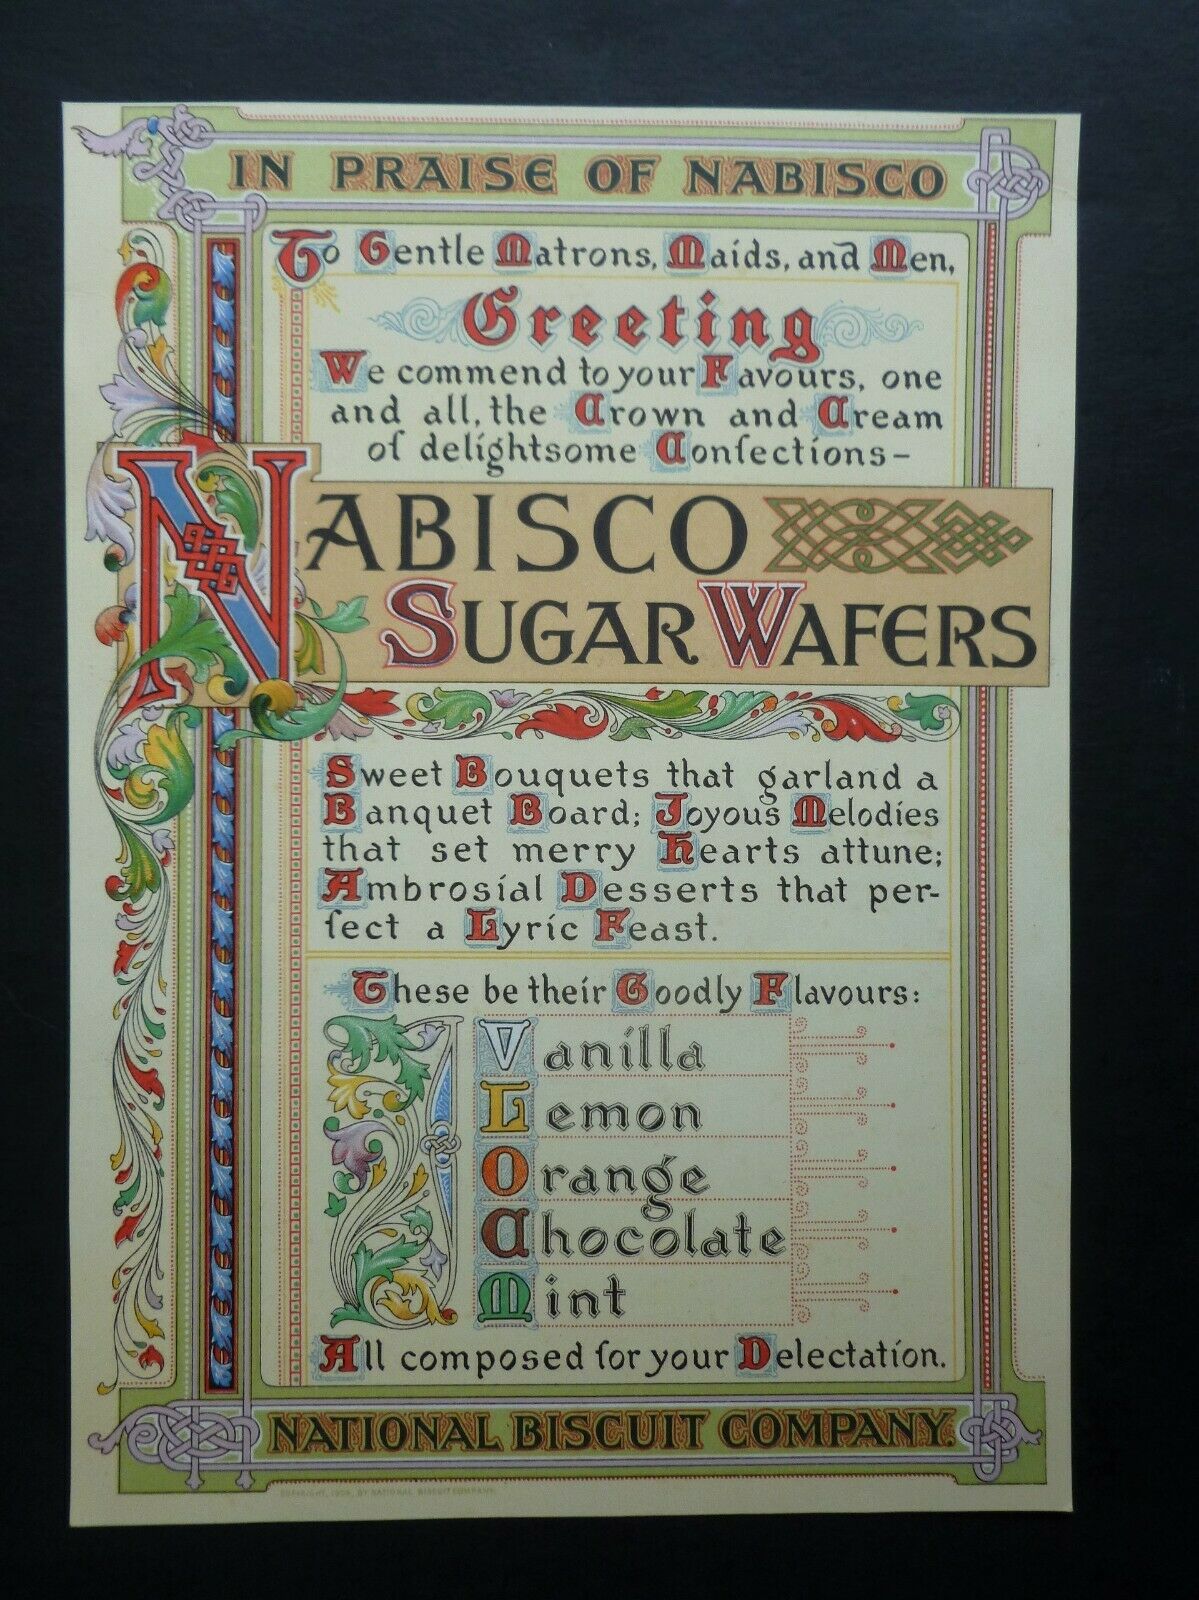 IN PRAISE OF NABISCO
To Gentle Matrons, Maids, and Men,
Greeting
We commend to your Favours, one
and all, the Crown and Cream
of delightsome Confections-
NABISCO
SUGAR WAFERS
Sweet Bouquets that garland a
Banquet Board; Joyous Melodies
that set merry Hearts attune;
Ambrosial Desserts that per-
fect a Lyric Feast.
These be their Goodly Flavours:
Vanilla
Lemon
Orange
Chocolate
Mint
All composed for your Delectation.
NATIONAL BISCUIT COMPANY.
COPYRIGHT, BY NATIONAL BISCUIT COMPANY.